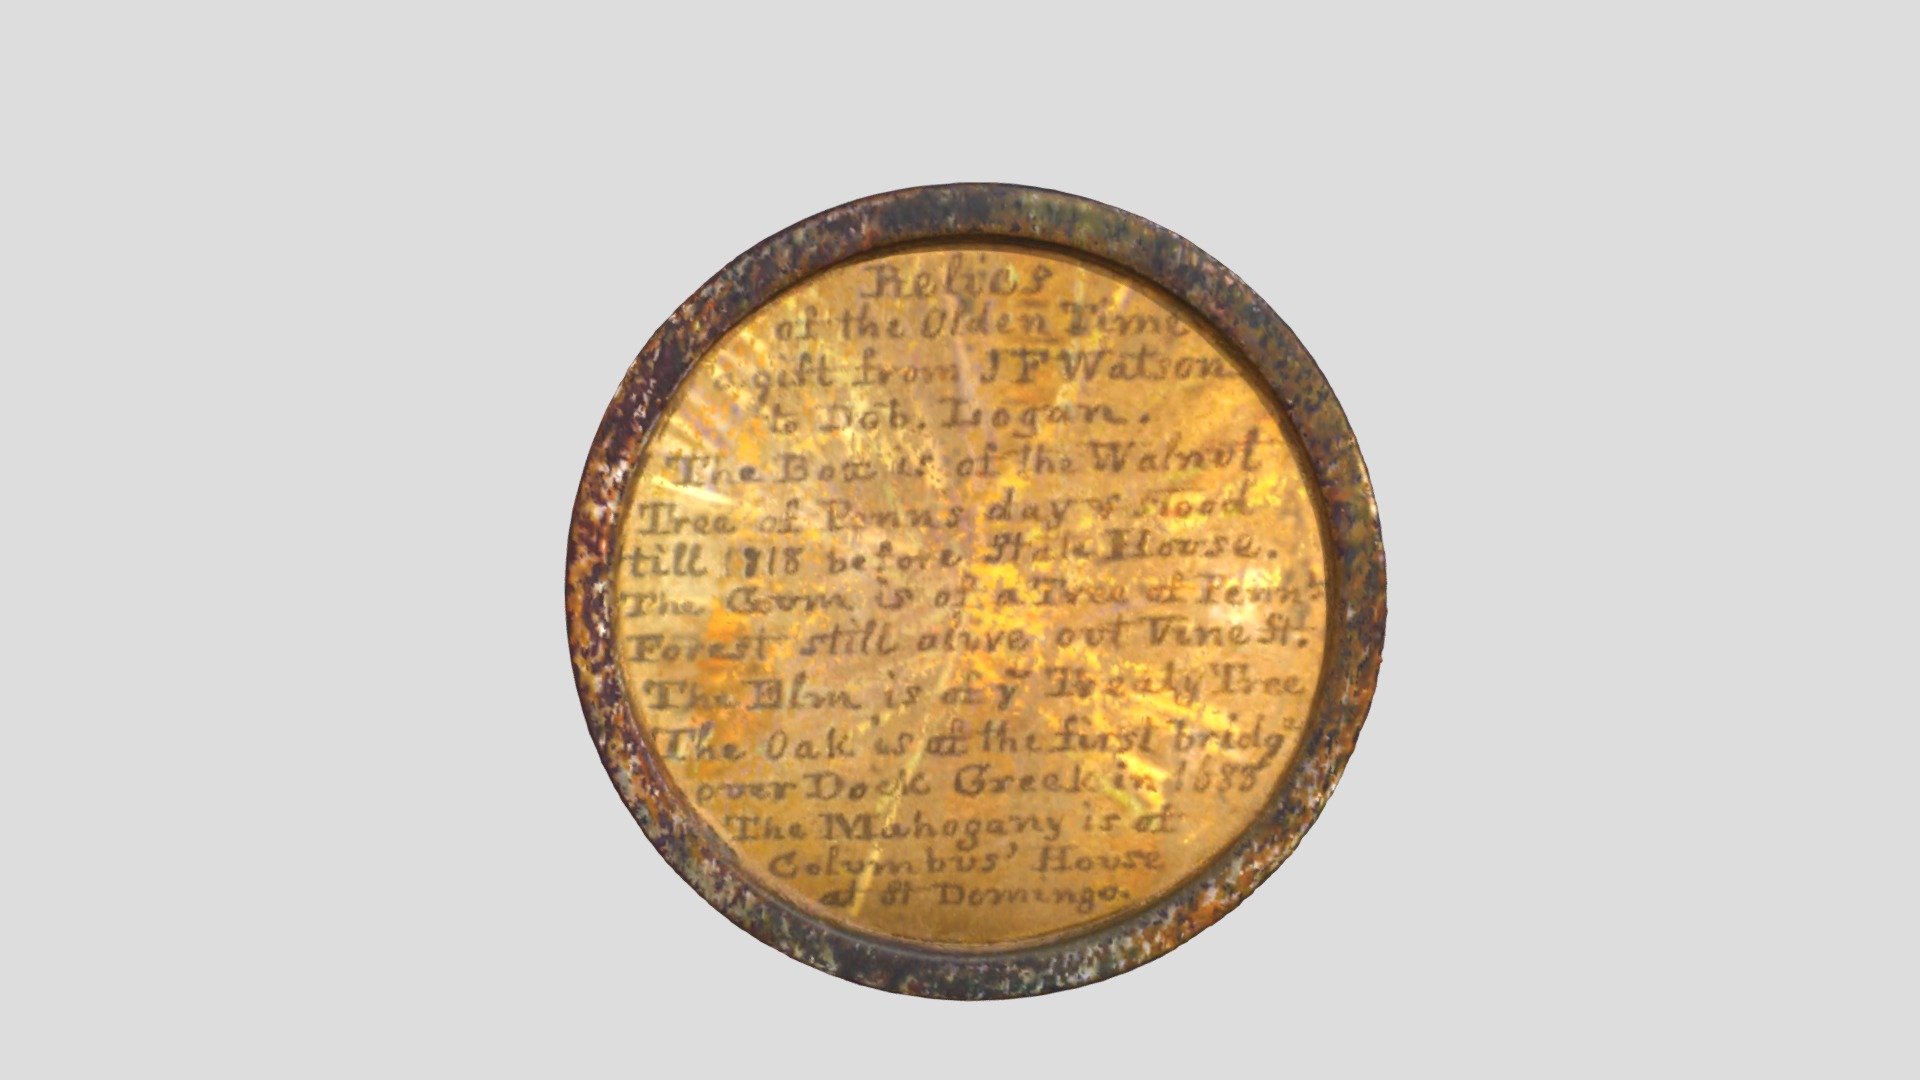 Relics
of the Olden Time
a gift from J F Watson
to Deb. Logan.
The Box is of the Walnut
Tree of Penns day & stood
till 1818 before State House.
The Gum is of a Tree of Penn's
Forest still alive out Vine St.
The Elm is of ye Treaty Tree
The Oak is of the first bridge
over Dock Creek in 1683
The Mahogany is of
Columbus' House
at St Domingo.